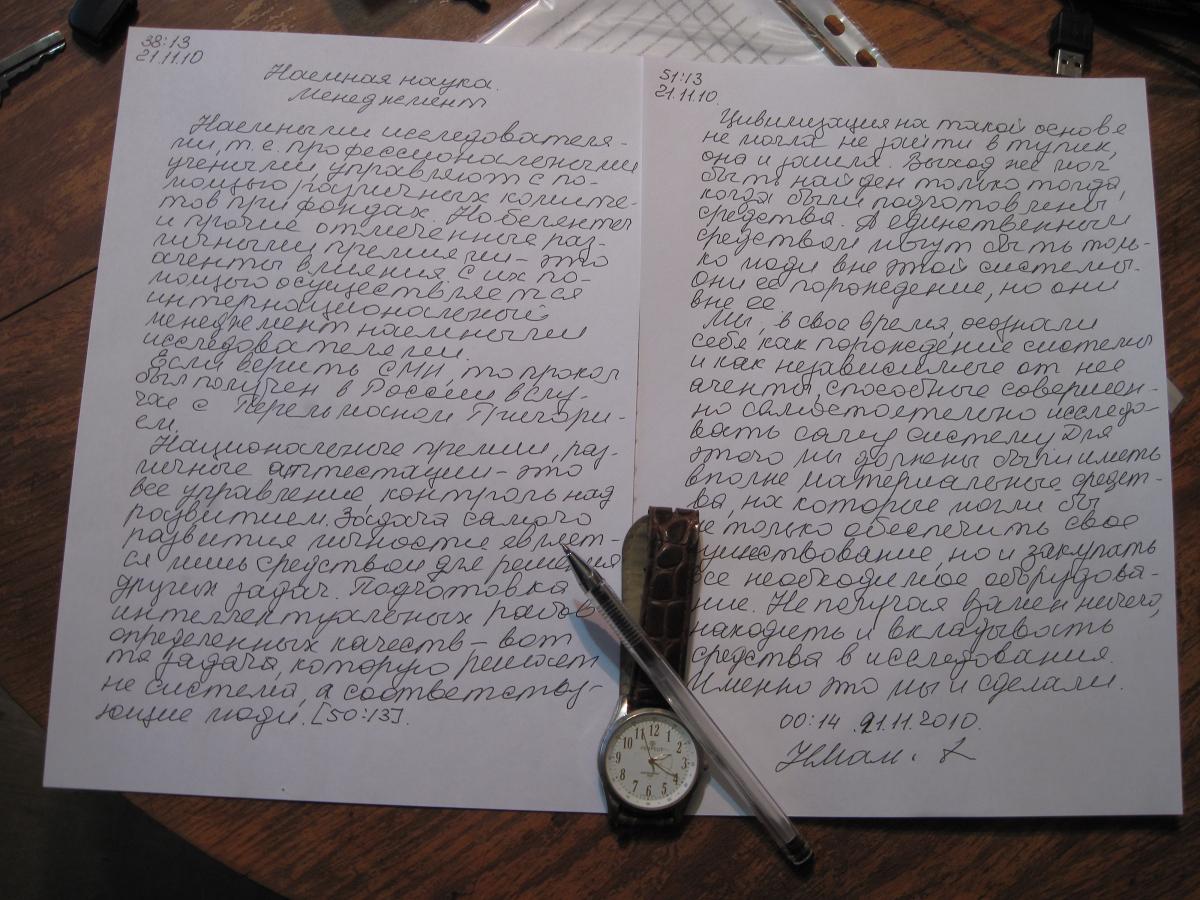 38:13
21.11.10
Наемная наука.
Менеджмент
Наемными исследователя-
ми, т.е. профессиональными
учеными, управляют с по-
мощью различных комите-
тов при фондах. Нобелянты
и прочие отмеченные раз-
личными премиями – это
агенты влияния. С их по-
мощью осуществляется
интернациональный
менеджмент наемными
исследователями.
Если верить СМИ, то прокол
был получен в России в слу-
чае с Перельманом Григори-
ем.
Национальные премии, раз-
личные аттестации – это
все управление, контроль над
развитием. Задача самого
развития личности являет-
ся лишь средством для решения
других задач. Подготовка
интеллектуальных рабов
определенных качеств – вот
та задача, которую решает
не система, а соответству-
ющие люди. [50:13].
51:13
21.11.10.
Цивилизация на такой основе
не могла не зайти в тупик,
она и зашла. Выход же мог
быть найден только тогда,
когда были подготовлены
средства. А единственным
средством могут быть толь-
ко люди вне этой системы.
Они ее порождение, но они
вне ее.
Мы, в свое время осознали
себя как порождение системы
и как независимые от нее
агенты, способные совершен-
но самостоятельно исследо-
вать саму систему. Для
этого мы должны были иметь
вполне материальные средст-
ва, на которые могли бы
не только обеспечить свое
существование, но и закупать
все необходимое оборудова-
ние. Не получая взамен ничего,
находить и вкладывать
средства в исследования.
Именно это мы и сделали.
00:14 21.11.2010.
11 12 1 2 3 4 5 6 7 8 9 10